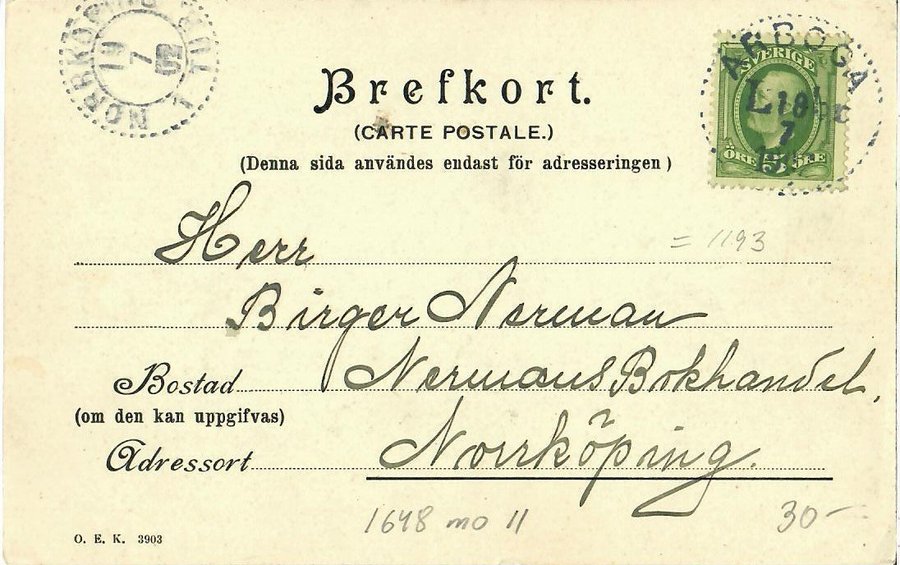 NORRKÖPING
19
7
Brefkort.
(CARTE POSTALE.)
(Denna sida användes endast för adresseringen)
SVERIGE
ÖRE 5 ÖRE
ARBOGA
18
7
= 1193
Herr
Birger Nerman
Bostad Nermans Bokhandel,
(om den kan uppgifvas)
Adressort Norrköping.
1648 mo 11
30-
O. E. K. 3903